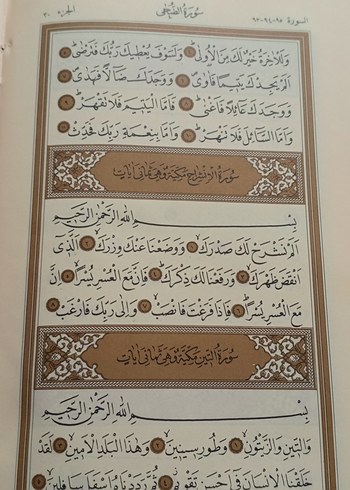 السورة ٩٣-٩٤-٩٥ سورة الضحى الجزء ٣٠
وَلَلْاٰخِرَةُ خَيْرٌ لَكَ مِنَ الْاُولٰىۜ ﴿٤﴾ وَلَسَوْفَ يُعْطٖيكَ رَبُّكَ فَتَرْضٰىۜ ﴿٥﴾
اَلَمْ يَجِدْكَ يَتٖيمًا فَاٰوٰىۖ ﴿٦﴾ وَوَجَدَكَ ضَٓالًّا فَهَدٰىۖ ﴿٧﴾
وَوَجَدَكَ عَٓائِلًا فَاَغْنٰىۜ ﴿٨﴾ فَاَمَّا الْيَتٖيمَ فَلَا تَقْهَرْۜ ﴿٩﴾
وَاَمَّا السَّٓائِلَ فَلَا تَنْهَرْۜ ﴿١٠﴾ وَاَمَّا بِنِعْمَةِ رَبِّكَ فَحَدِّثْ ﴿١١﴾
سورة الانشراح مكية وهي ثماني آيات
بِسْمِ اللّٰهِ الرَّحْمٰنِ الرَّحٖيمِ
اَلَمْ نَشْرَحْ لَكَ صَدْرَكَۙ ﴿١﴾ وَوَضَعْنَا عَنْكَ وِزْرَكَۙ ﴿٢﴾ اَلَّذٖٓي
اَنْقَضَ ظَهْرَكَۙ ﴿٣﴾ وَرَفَعْنَا لَكَ ذِكْرَكَۜ ﴿٤﴾ فَاِنَّ مَعَ الْعُسْرِ يُسْرًاۙ ﴿٥﴾ اِنَّ
مَعَ الْعُسْرِ يُسْرًاۜ ﴿٦﴾ فَاِذَا فَرَغْتَ فَانْصَبْۙ ﴿٧﴾ وَاِلٰى رَبِّكَ فَارْغَبْ ﴿٨﴾
سورة التين مكية وهي ثماني آيات
بِسْمِ اللّٰهِ الرَّحْمٰنِ الرَّحٖيمِ
وَالتّٖينِ وَالزَّيْتُونِۙ ﴿١﴾ وَطُورِ سٖينٖينَۙ ﴿٢﴾ وَهٰذَا الْبَلَدِ الْاَمٖينِۙ ﴿٣﴾ لَقَدْ
خَلَقْنَا الْاِنْسَانَ فٖٓي اَحْسَنِ تَقْوٖيمٍۘ ﴿٤﴾ ثُمَّ رَدَدْنَاهُ اَسْفَلَ سَافِلٖينَۙ ﴿٥﴾